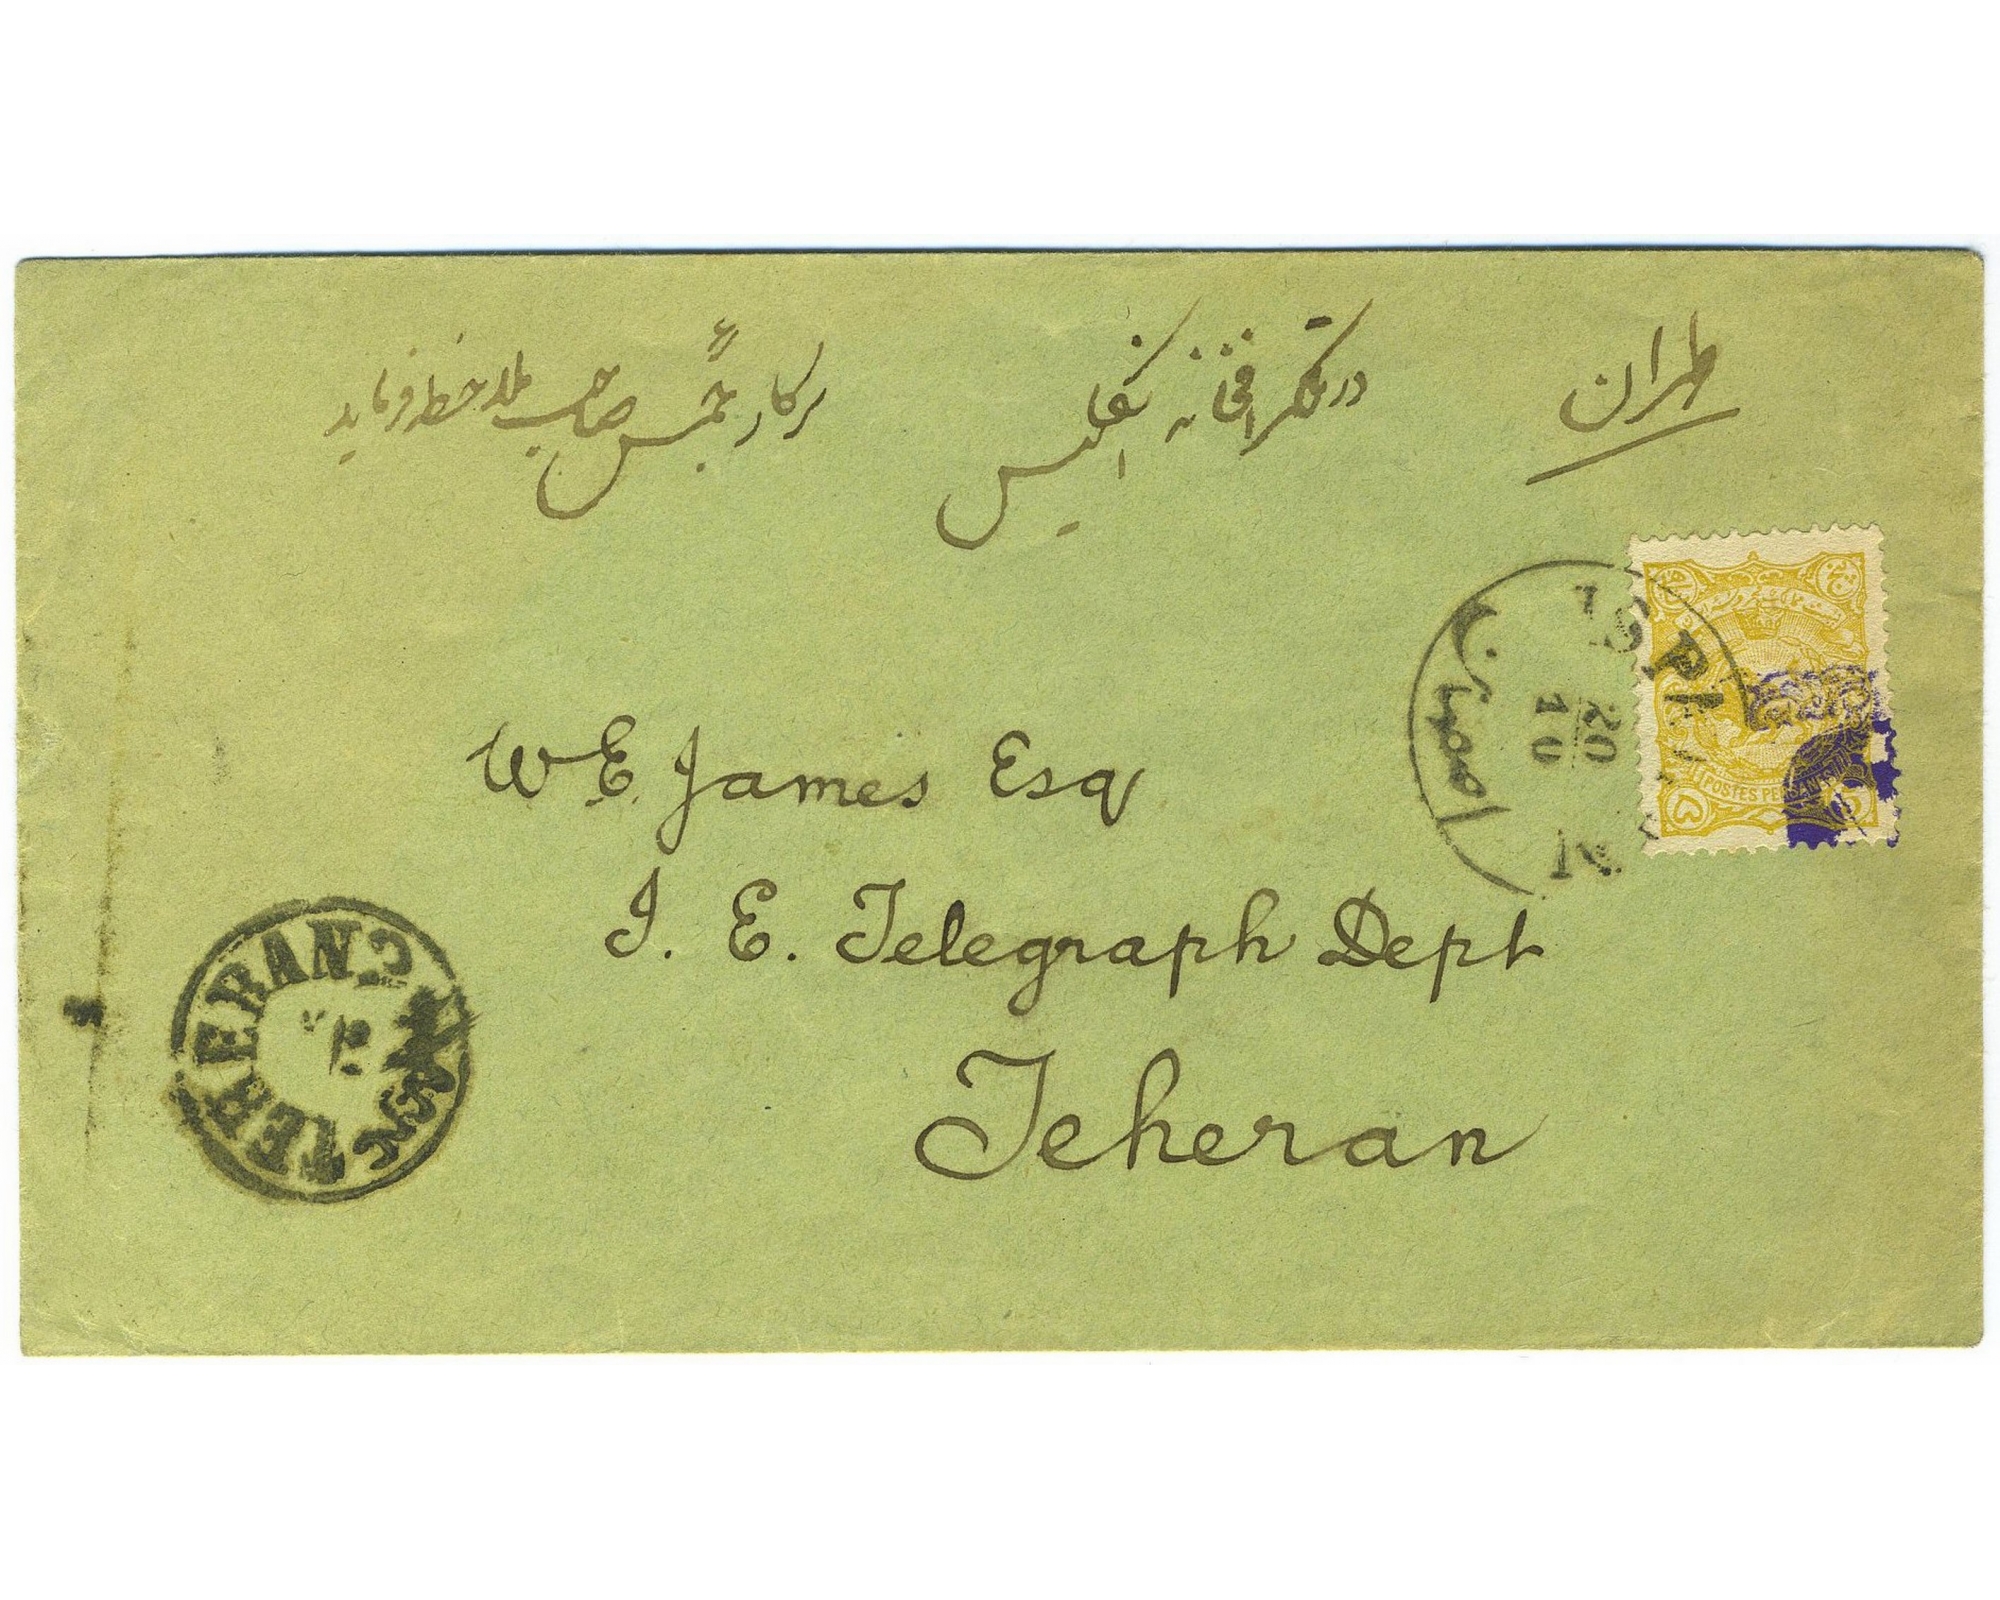 طهران
در تلگرافخانه انگلیس
سرکار جمس صاحب ملاحظه فرماید
W. E. James Esq
I. E. Telegraph Dept
Teheran
20
10
اصفهان
TEHERAN
POSTES PERSANES
۵